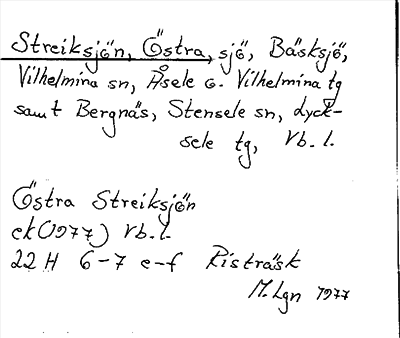 Streiksjön, Östra, sjö, Bäsksjö,
Vilhelmina sn, Åsele o. Vilhelmina tg
samt Bergnäs, Stensele sn, Lyck-
sele tg, Vb. l.
Östra Streiksjön
ek (1977) Vb. l.
22 H 6-7 e-f Risträsk
M. Lgn 1977